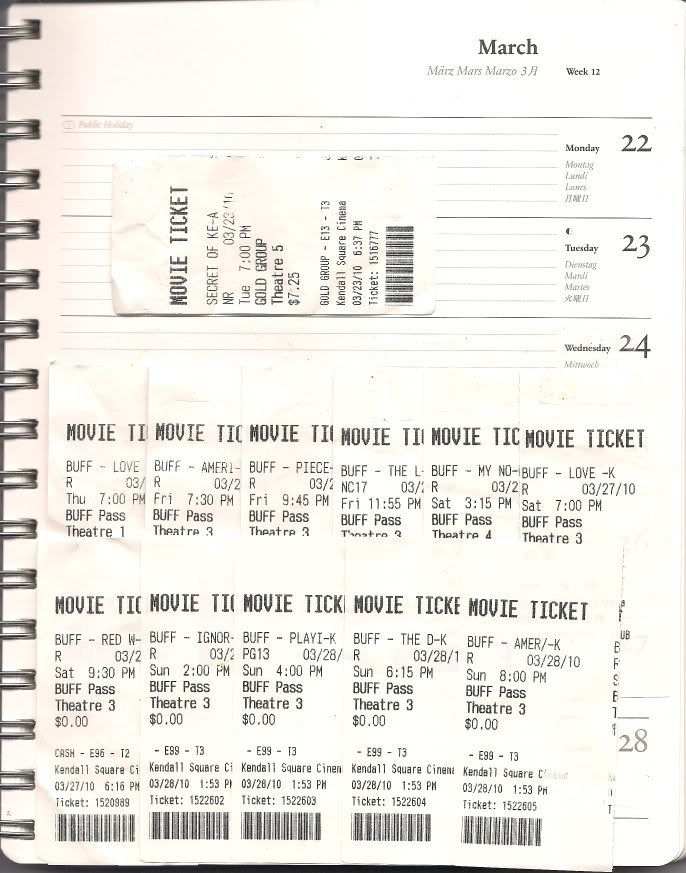 March
März Mars Marzo 3月
Week 12
Public Holiday
Monday 22
Montag
Lundi
Lunes
月曜日
MOVIE TICKET
SECRET OF KE-A
NR 03/23/10
Tue 7:00 PM
GOLD GROUP
Theatre 5
$7.25
GOLD GROUP - E13 - T3
Kendall Square Cinema
03/23/10 6:37 PM
Ticket: 1516777
Tuesday 23
Dienstag
Mardi
Martes
火曜日
Wednesday 24
Mittwoch
MOVIE TI
BUFF - LOVE
R 03/
Thu 7:00 PM
BUFF Pass
Theatre 1
MOVIE TIC
BUFF - AMERI-
R 03/2
Fri 7:30 PM
BUFF Pass
Theatre 3
MOVIE TICK
BUFF - PIECE-
R 03/2
Fri 9:45 PM
BUFF Pass
Theatre 3
MOVIE TICK
BUFF - THE L-
NC17 03/2
Fri 11:55 PM
BUFF Pass
Theatre 3
MOVIE TIC
BUFF - MY NO-
R 03/2
Sat 3:15 PM
BUFF Pass
Theatre 4
MOVIE TICKET
BUFF - LOVE -K
R 03/27/10
Sat 7:00 PM
BUFF Pass
Theatre 3
MOVIE TIC
BUFF - RED W-
R 03/2
Sat 9:30 PM
BUFF Pass
Theatre 3
$0.00
CASH - E96 - T2
Kendall Square Ci
03/27/10 6:16 PM
Ticket: 1520989
MOVIE TIC
BUFF - IGNOR-
R 03/2
Sun 2:00 PM
BUFF Pass
Theatre 3
$0.00
- E99 - T3
Kendall Square Ci
03/28/10 1:53 P
Ticket: 1522602
MOVIE TICK
BUFF - PLAYI-K
PG13 03/28/
Sun 4:00 PM
BUFF Pass
Theatre 3
$0.00
- E99 - T3
Kendall Square Cinem
03/28/10 1:53 PM
Ticket: 1522603
MOVIE TICKE
BUFF - THE D-K
R 03/28/1
Sun 6:15 PM
BUFF Pass
Theatre 3
$0.00
- E99 - T3
Kendall Square Cinema
03/28/10 1:53 PM
Ticket: 1522604
MOVIE TICKET
BUFF - AMER/-K
R 03/28/10
Sun 8:00 PM
BUFF Pass
Theatre 3
$0.00
- E99 - T3
Kendall Square Cinema
03/28/10 1:53 PM
Ticket: 1522605
28